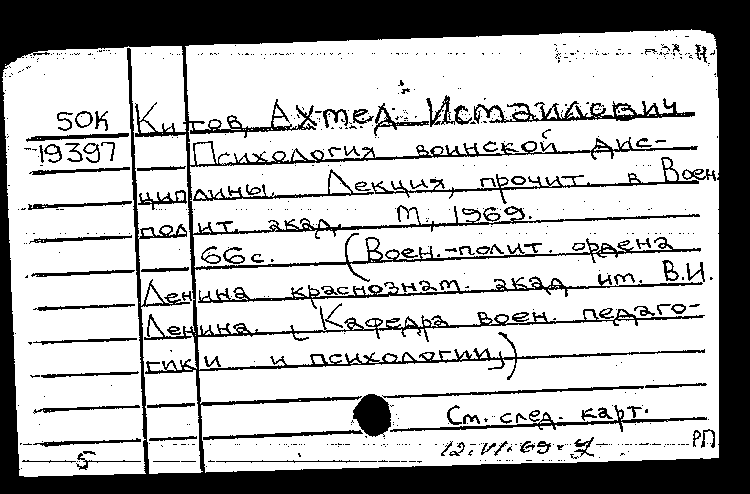 50К Китов, Ахмед Исмаилович
19397 Психология воинской дис-
циплины. Лекция, прочит. в Воен.
полит. акад. М., 1969.
66 с. (Воен.-полит. ордена
Ленина краснознам. акад им. В.И.
Ленина. Кафедра воен. педаго-
гики и психологии)
См. след. карт.
5 12.VI.69 РП